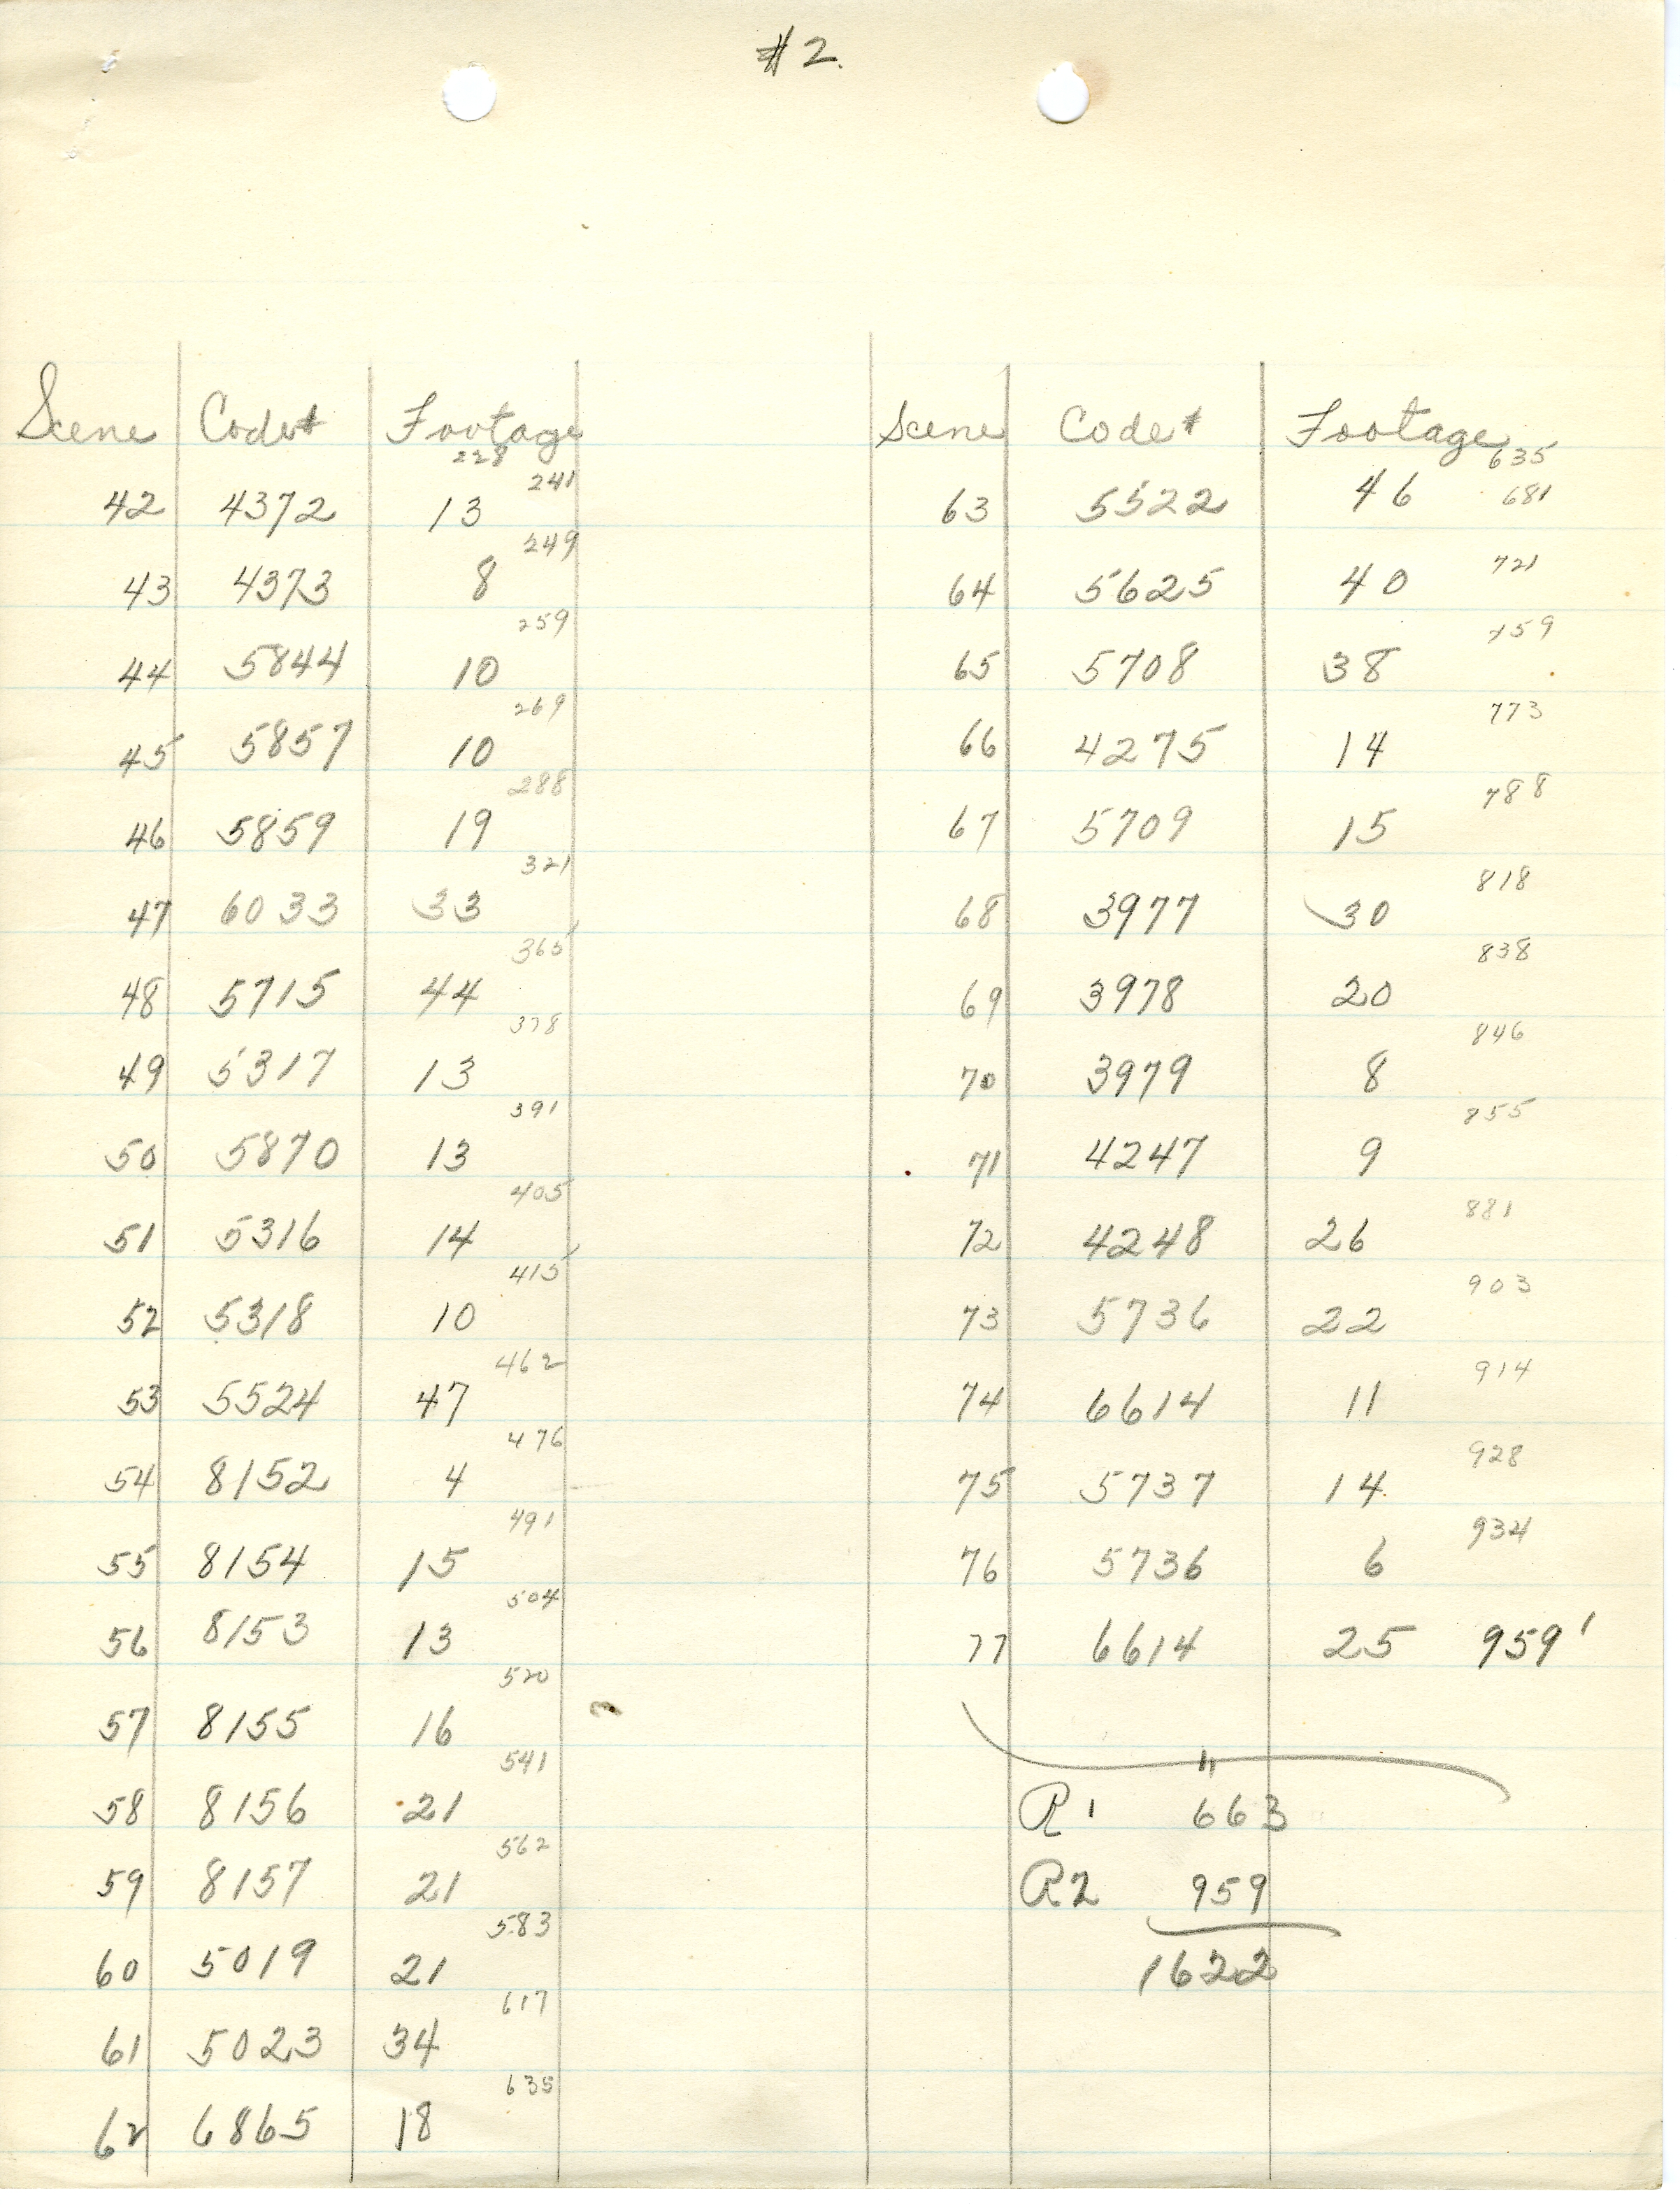 #2.
Scene Code# Footage
228
241
42 4372 13
249
43 4373 8
259
44 5844 10
269
45 5857 10
288
46 5859 19
321
47 6033 33
365
48 5715 44
378
49 5317 13
391
50 5870 13
405
51 5316 14
415
52 5318 10
462
53 5524 47
476
54 8152 4
491
55 8154 15
504
56 8153 13
520
57 8155 16
541
58 8156 21
562
59 8157 21
583
60 5019 21
617
61 5023 34
635
62 6865 18
Scene Code# Footage
635
63 5522 46 681
721
64 5625 40
759
65 5708 38
773
66 4275 14
788
67 5709 15
818
68 3977 30
838
69 3978 20
846
70 3979 8
855
71 4247 9
881
72 4248 26
903
73 5736 22
914
74 6614 11
928
75 5737 14
934
76 5736 6
77 6614 25 959'
R1 663
R2 959
1622